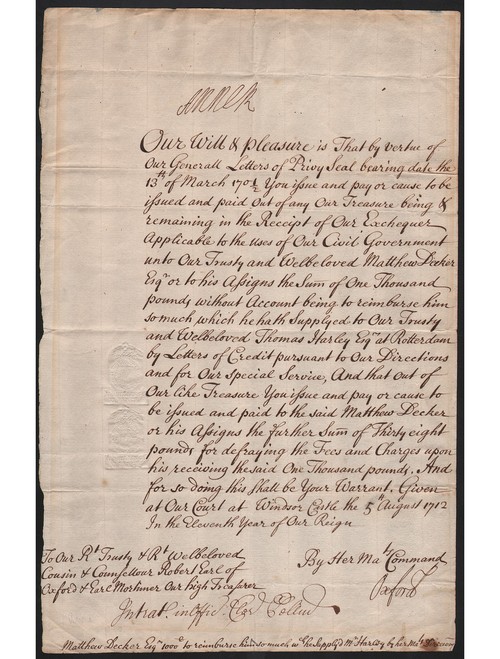 Anne R
Our Will & pleasure is That by vertue of
Our Generall Letters of Privy Seal bearing date the
13th of March 170½ You issue and pay or cause to be
issued and paid Out of any Our Treasure being &
remaining in the Receipt of Our Exchequer
Applicable to the Uses of Our Civil Government
unto Our Trusty and Welbeloved Matthew Decker
Esqr or to his Assigns the Sum of One Thousand
pounds without Account being to reimburse him
so much which he hath Supplyed to Our Trusty
and Welbeloved Thomas Harley Esqr at Rotterdam
by Letters of Credit pursuant to Our Directions
and for Our Special Service, And that out of
Our like Treasure You issue and pay or cause to
be issued and paid to the said Matthew Decker
or his Assigns the further Sum of Thirty eight
pounds for defraying the Fees and Charges upon
his receiving the said One Thousand pounds. And
for so doing this shall be Your Warrant. Given
at Our Court at Windsor Castle the 5th August 1712
In the Eleventh Year of Our Reign
To Our Rt Trusty & Rt Welbeloved
Cousin & Councellour Robert Earl of
Oxford & Earl Mortimer Our high Treasurer
By Her Mats Command
Oxford
Intrat in Offic
Matthew Decker Esqr 1000£ to reimburse him so much wch he Supplyd Mr Harley by her Mats Direccon